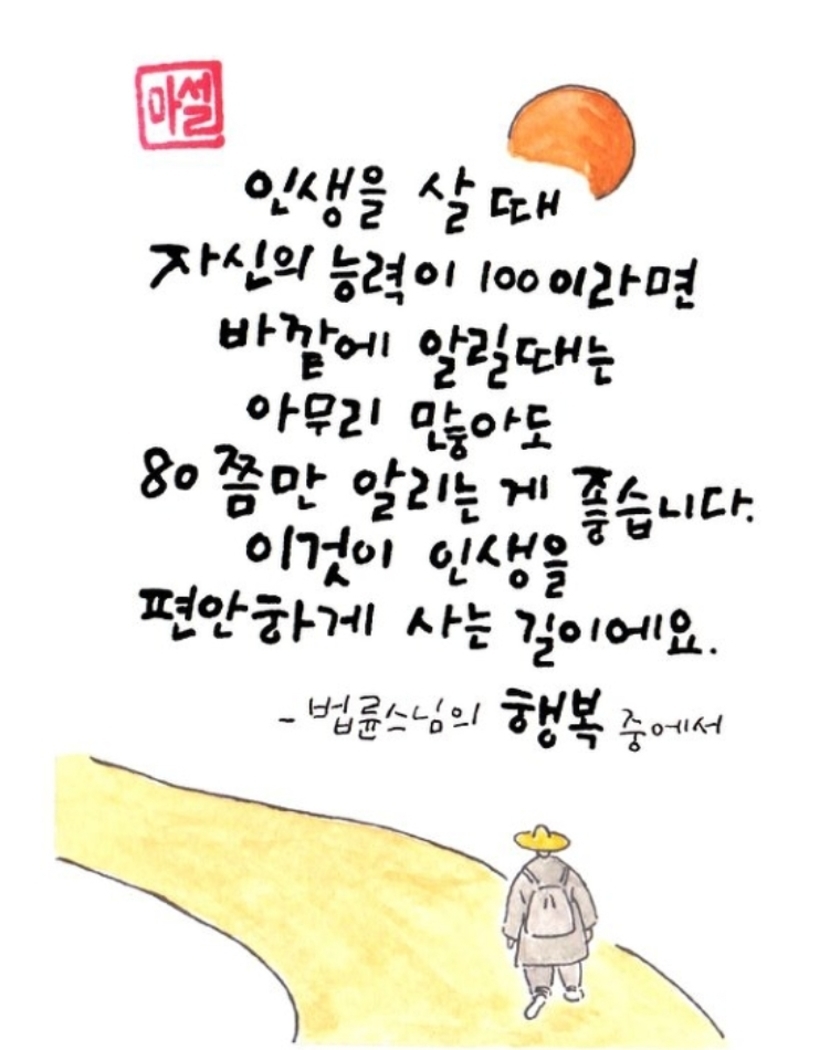 마셀
인생을 살 때
자신의 능력이 100이라면
바깥에 알릴때는
아무리 많아도
80쯤만 알리는 게 좋습니다.
이것이 인생을
편안하게 사는 길이에요.
- 법륜스님의 행복 중에서